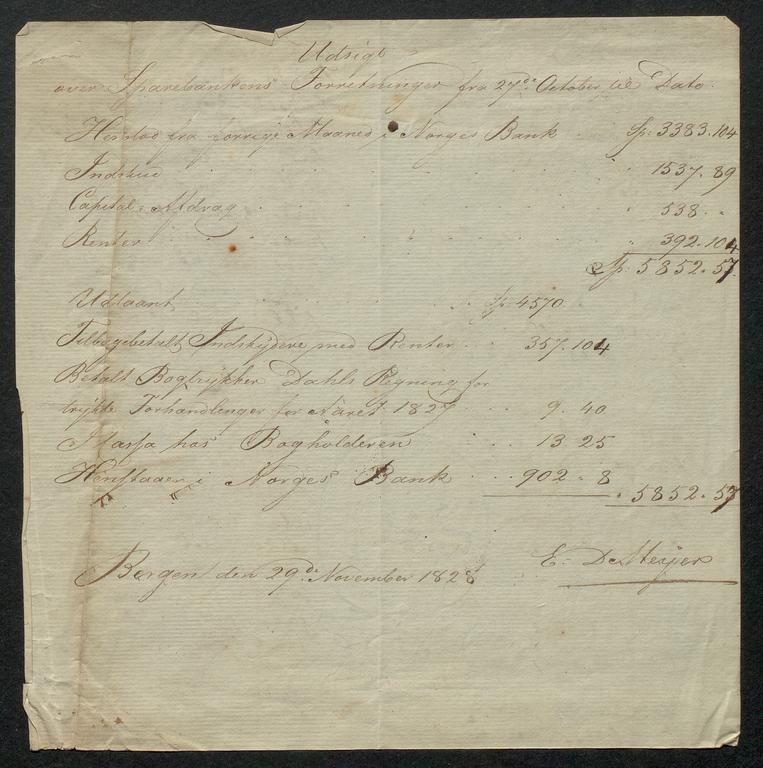 Udsigt
over Sparebankens Forretninger fra 27de October til Dato.
Henstod fra forrige Maaned i Norges Bank Sp. 3383.104
Indskud 1537.89
Capital-Afdrag 538.
Renter 392.104
Sp. 5852.57
Udlaant Sp. 4570
Tilbagebetalt Indskydere med Renter 357.104
Betalt Bogtrykker Dahls Regning for
trykte Forhandlinger for Aaret 1827 9.40
I Cassa hos Bogholderen 13.25
Henstaaer i Norges Bank 902.8
5852.57
Bergen den 29de November 1828
E. D. Meyer